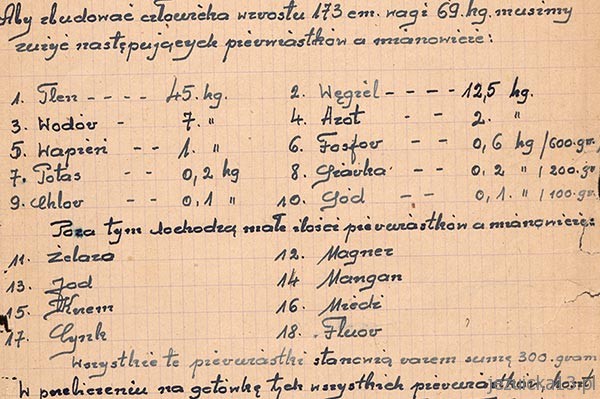 Aby zbudować człowieka wzrostu 173 cm. wagi 69. kg. musimy
zużyć następujących pierwiastków a mianowicie:
1. Tlen - - - - 45. kg. 2. Węgiel - - - - 12,5 kg.
3. Wodór - 7. " 4. Azot - - 2. "
5. Wapień - - 1. " 6. Fosfor - - 0,6 kg / 600. gr.
7. Potas - - 0,2 kg 8. Siarka - - 0,2 " / 200. gr
9. Chlor - - 0,1 " 10. Sód - - 0,1. " / 100. gr
Poza tym dochodzą małe ilości pierwiastków a mianowicie:
11. Żelazo 12. Magnez
13. Jod 14 Mangan
15. Krzem 16. Miedź
17. Cynk 18. Fluor
Wszystkie te pierwiastki stanowią razem sumę 300. gram
W przeliczeniu na gotówkę tych wszystkich pierwiastków, koszt